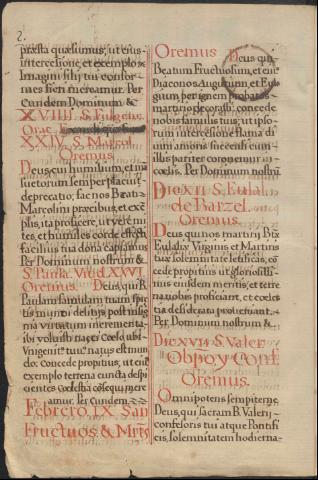 2.
præsta quæsumus, ut ejus
intercessione, et exemplo
Imagini filij tui confor-
mes fieri mereamur. Per
eundem Dominum &
XVIIII. S. Fulgent.
Orat.
XXIV. S. Marcel.
Oremus
Deus, qui humilium, et mã
suetorum semper placuit
deprecatio; fac nos Beati
Marcolini præcibus, et exẽ
plis, ita proficere, ut vere mi
tes, et humiles corde effecti
facilius tua dona capiamus
Per Dominum nostrum &
S. Paula. Viud. XXVI.
Oremus. Deus, qui B.
Paulam famulam tuam spre
tis mundi delitijs post insig
nia virtutum incrementa
ibi voluisti nasci Cœlo ubi
Unigenit. tuus natus est mun
do: Concede propitius, ut eius
exemplo terrena cuncta despi
cientes Cœlestia assequi mere
amur. Per eundem
Febrero. IX San
Fructuos & Mrts
Oremus Deus qui
Beatum Fructuosum, et eius
Diaconos Augurium, et Eulo
gium per ignem probatos
martyrio decorasti: concede
nobis familis tuis, ut ipso-
rum intercessione flama di
vini amoris succensi cum
illis pariter coronemur in
cœlis. Per Dominum nostrũ
Die XII S. Eulal.
de Barzel.
Oremus.
Deus qui nos martiri Btæ
Eulaliæ Virginis et Martiris
solemnitate letificas, cõ
cede propitius ut gloriosissi-
mis eiusdem meritis, et terre
na nobis proficiant, et cœles
tia desiderata proveniant.
Per. Dominum nostrum &
Die XVII S. Valer
Obpo y Conf.
Oremus.
Omnipotens sempiterne
Deus, qui sacram B. Valerij
confesoris tui atque Pontifi
cis, solemnitatem hodierna-